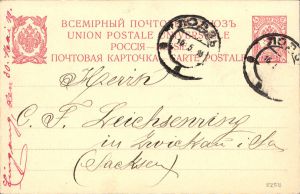 ВСЕМІРНЫЙ ПОЧТОВЫЙ СОЮЗЪ
UNION POSTALE UNIVERSELLE
РОССІЯ RUSSIE
ПОЧТОВАЯ КАРТОЧКА CARTE POSTALE
ЛОДЗЬ
ЛОДЗЬ
Herrn
C. F. Leichsenring
in Zwickau i/Sa
(Sachsen)